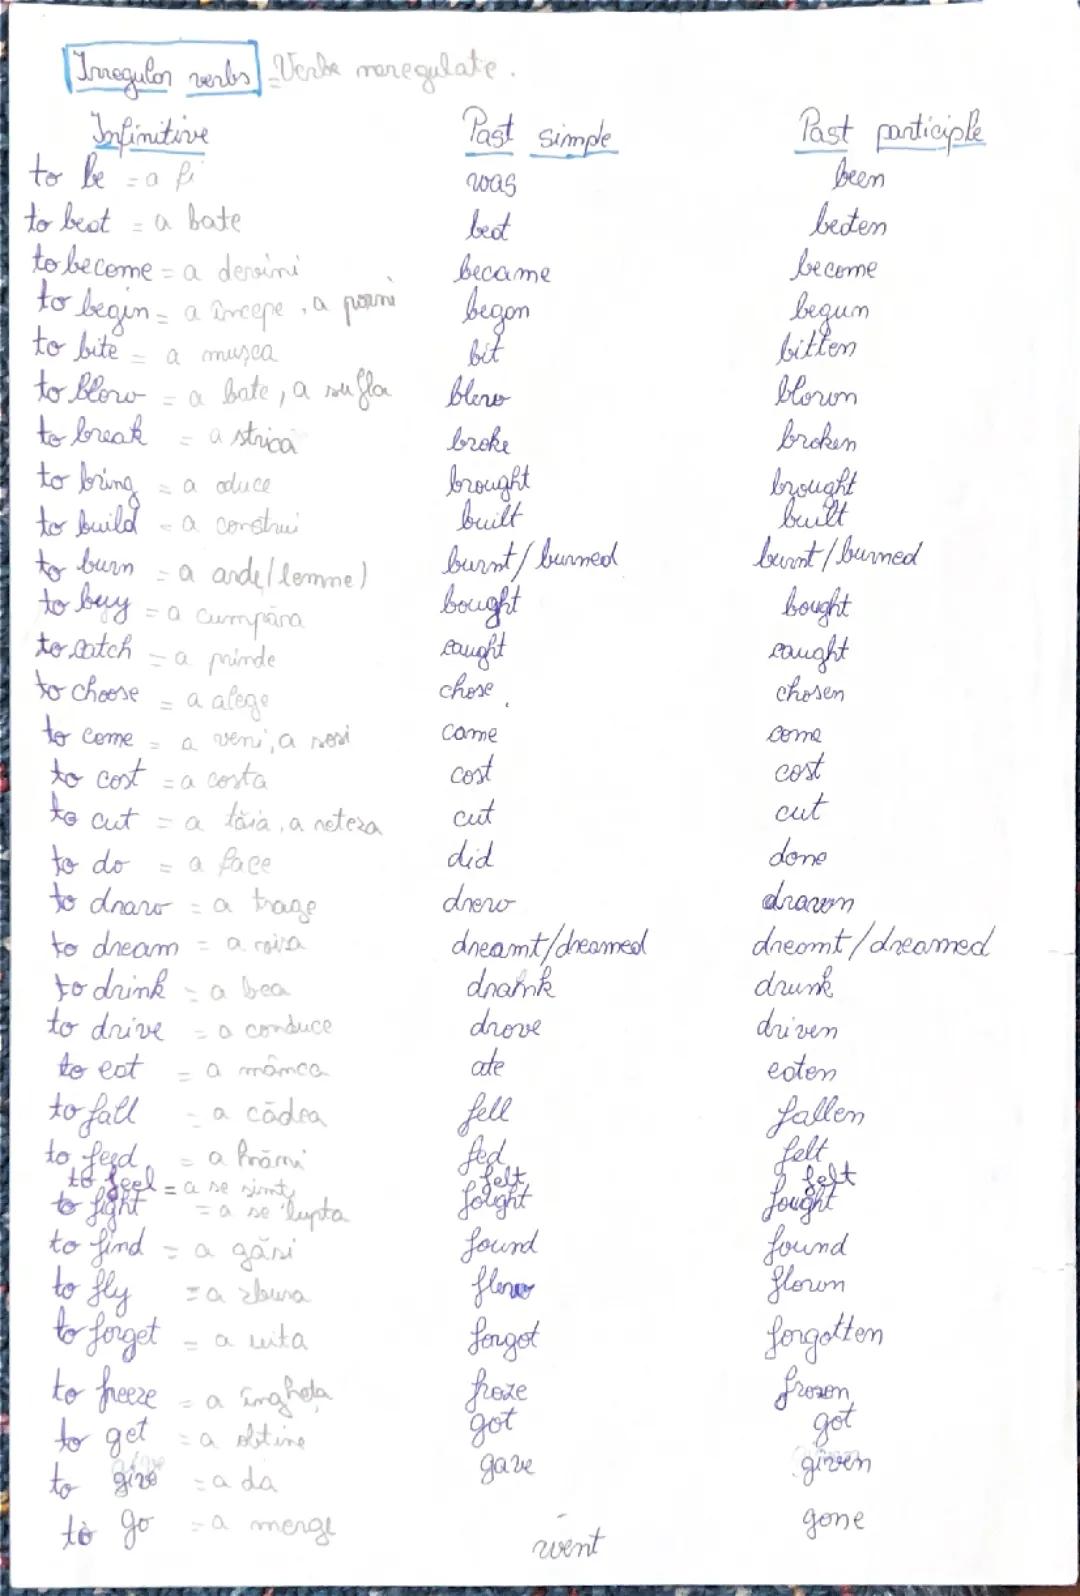 Irregular verbs = Verbe neregulate.
Infinitive Past simple Past participle
to be = a fi was been
to beat = a bate beat beaten
to become = a deveini became become
to begin = a începe, a porni began begun
to bite = a mușca bit bitten
to blow = a bate, a sufla blew blown
to break = a strica broke broken
to bring = a aduce brought brought
to build = a construi built built
to burn = a arde (lemne) burnt/burned burnt/burned
to buy = a cumpăra bought bought
to catch = a prinde caught caught
to choose = a alege chose chosen
to come = a veni, a sosi came come
to cost = a costa cost cost
to cut = a tăia, a neteza cut cut
to do = a face did done
to draw = a trage drew drawn
to dream = a visa dreamt/dreamed dreamt/dreamed
to drink = a bea drank drunk
to drive = a conduce drove driven
to eat = a mânca ate eaten
to fall = a cădea fell fallen
to feed = a hrăni fed felt
to feel = a se simți felt felt
to fight = a se lupta fought fought
to find = a găsi found found
to fly = a zbura flew flown
to forget = a uita forgot forgotten
to freeze = a îngheța froze frozen
to get = a obtine got got
to give = a da gave given
to go = a merge went gone